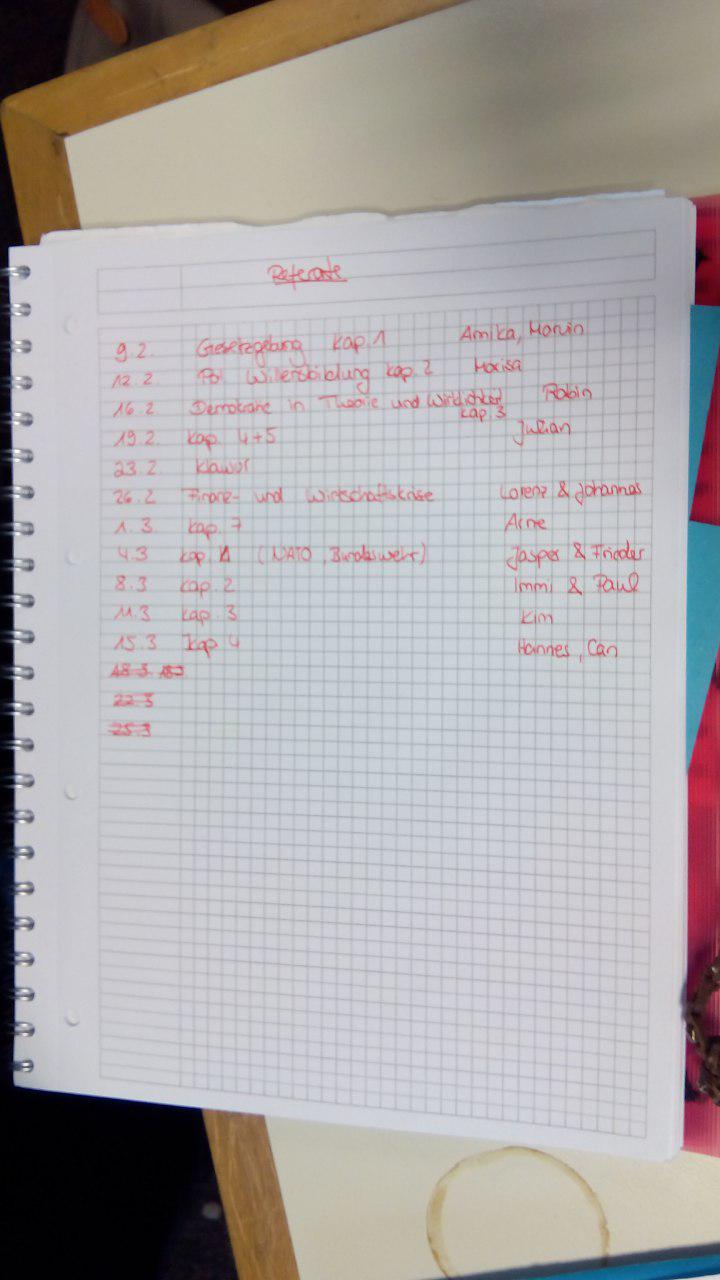 Referate
9.2. Gesetzgebung Kap. 1 Annika, Marvin
12.2. Pol. Willensbildung Kap. 2 Marisa
16.2. Demokratie in Theorie und Wirklichkeit Robin
Kap. 3
19.2. Kap. 4+5 Julian
23.2. Klausur
26.2. Finanz- und Wirtschaftskrise Lorenz & Johannes
1.3. Kap. 7 Arne
4.3 Kap. 1 (NATO, Bundeswehr) Jasper & Frieder
8.3 Kap. 2 Immi & Paul
11.3 Kap. 3 Kim
15.3 Kap. 4 Hannes, Can
18.3
22.3
25.3